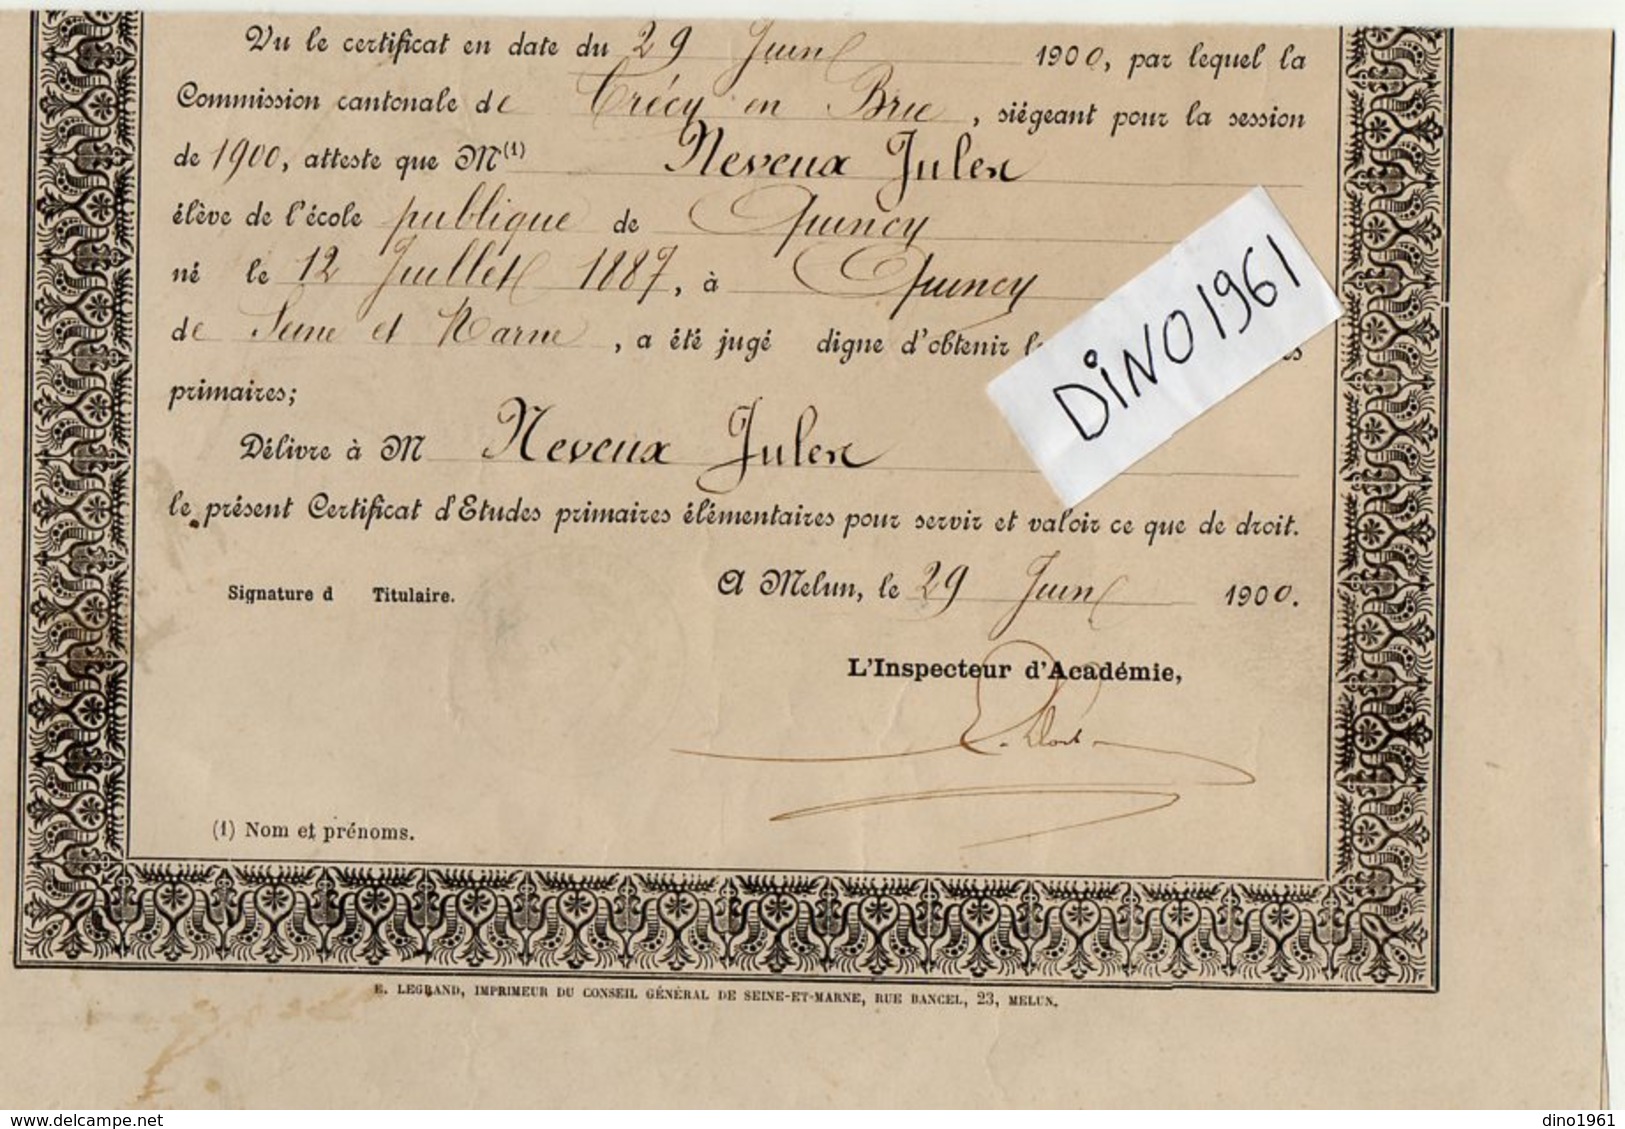 Vu le certificat en date du 29 Juin 1900, par lequel la
Commission cantonale de Crécy en Brie, siégeant pour la session
de 1900, atteste que M(1) Neveux Jules
élève de l'école publique de Quincy
né le 12 Juillet 1887, à Quincy
de Seine et Marne, a été jugé digne d'obtenir
primaires;
Délivre à M Neveux Jules
le présent Certificat d'Etudes primaires élémentaires pour servir et valoir ce que de droit.
A Melun, le 29 Juin 1900.
Signature d Titulaire.
L'Inspecteur d'Académie,
(1) Nom et prénoms.
E. LEGRAND, IMPRIMEUR DU CONSEIL GÉNÉRAL DE SEINE-ET-MARNE, RUE BANCEL, 23, MELUN.
DiNO1961
www.delcampe.net
dino1961